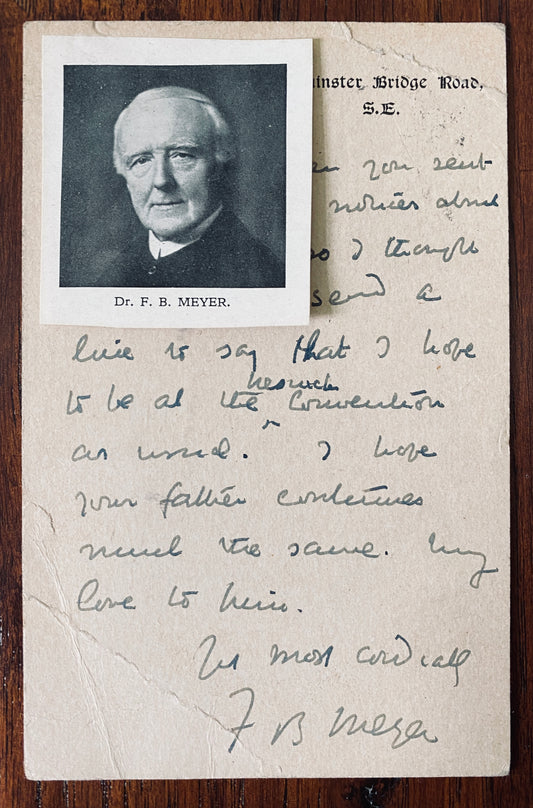 Dr. F. B. MEYER.
inster Bridge Road,
S.E.
you sent
notices about
so I thought
send a
line to say that I hope
to be at the Convention
as usual. I hope
your father continues
much the same. My
love to him.
most cordially
F B Meyer